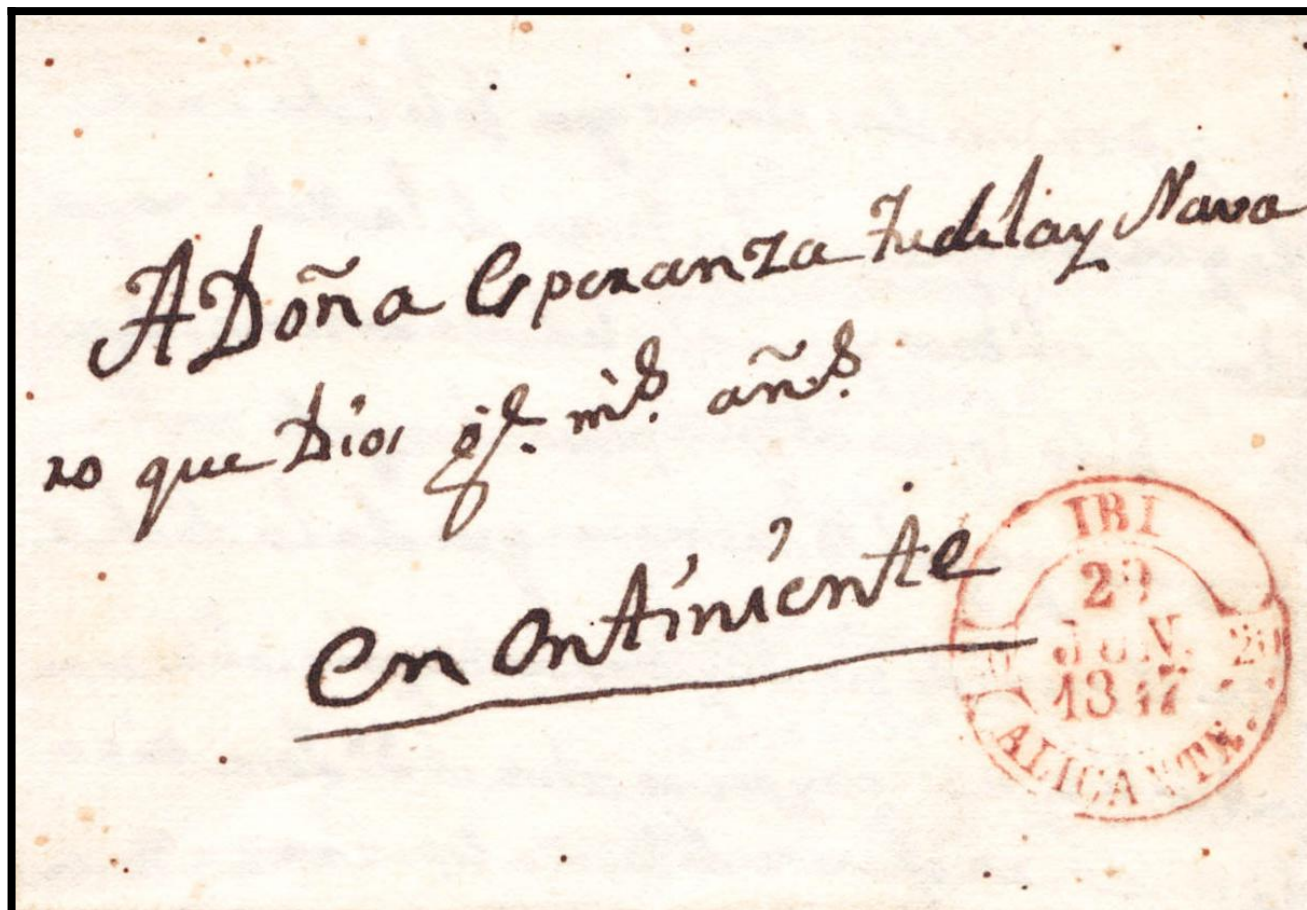 A Doña Esperanza Tudela y Nava
ro que Dios g.e m.s añ.s
en Ontiniente
IBI
29
JUN.
1847
ALICANTE.